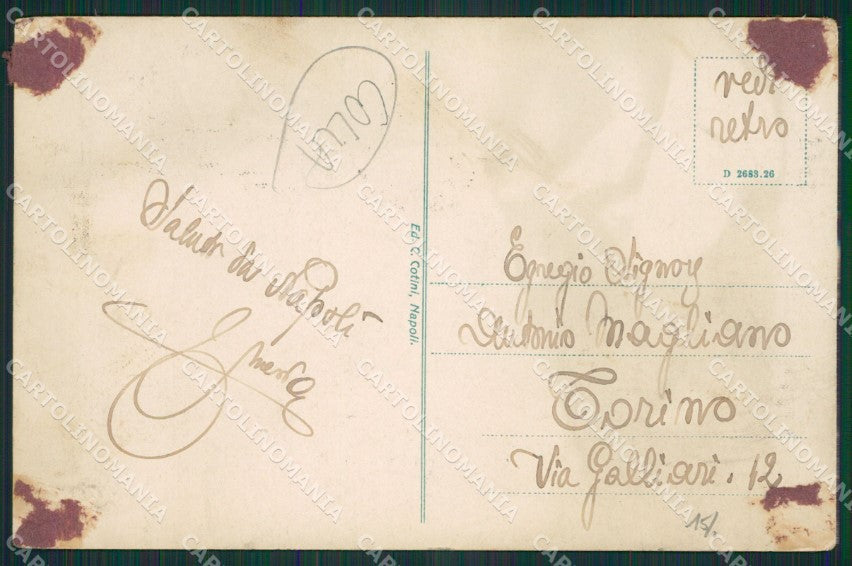 Saluti da Napoli
Ed. C. Cotini, Napoli.
vedi
retro
D 2683.26
Egregio Signor
Antonio Magliano
Torino
Via Galliari. 12
15/.
CARTOLINOMANIA